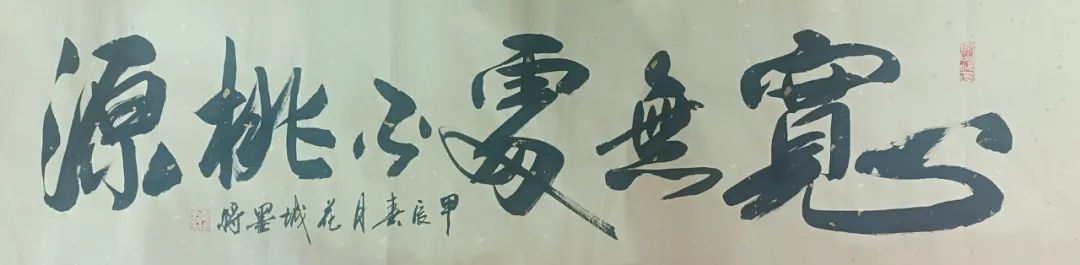 心寬無處不桃源
甲辰春月花城墨